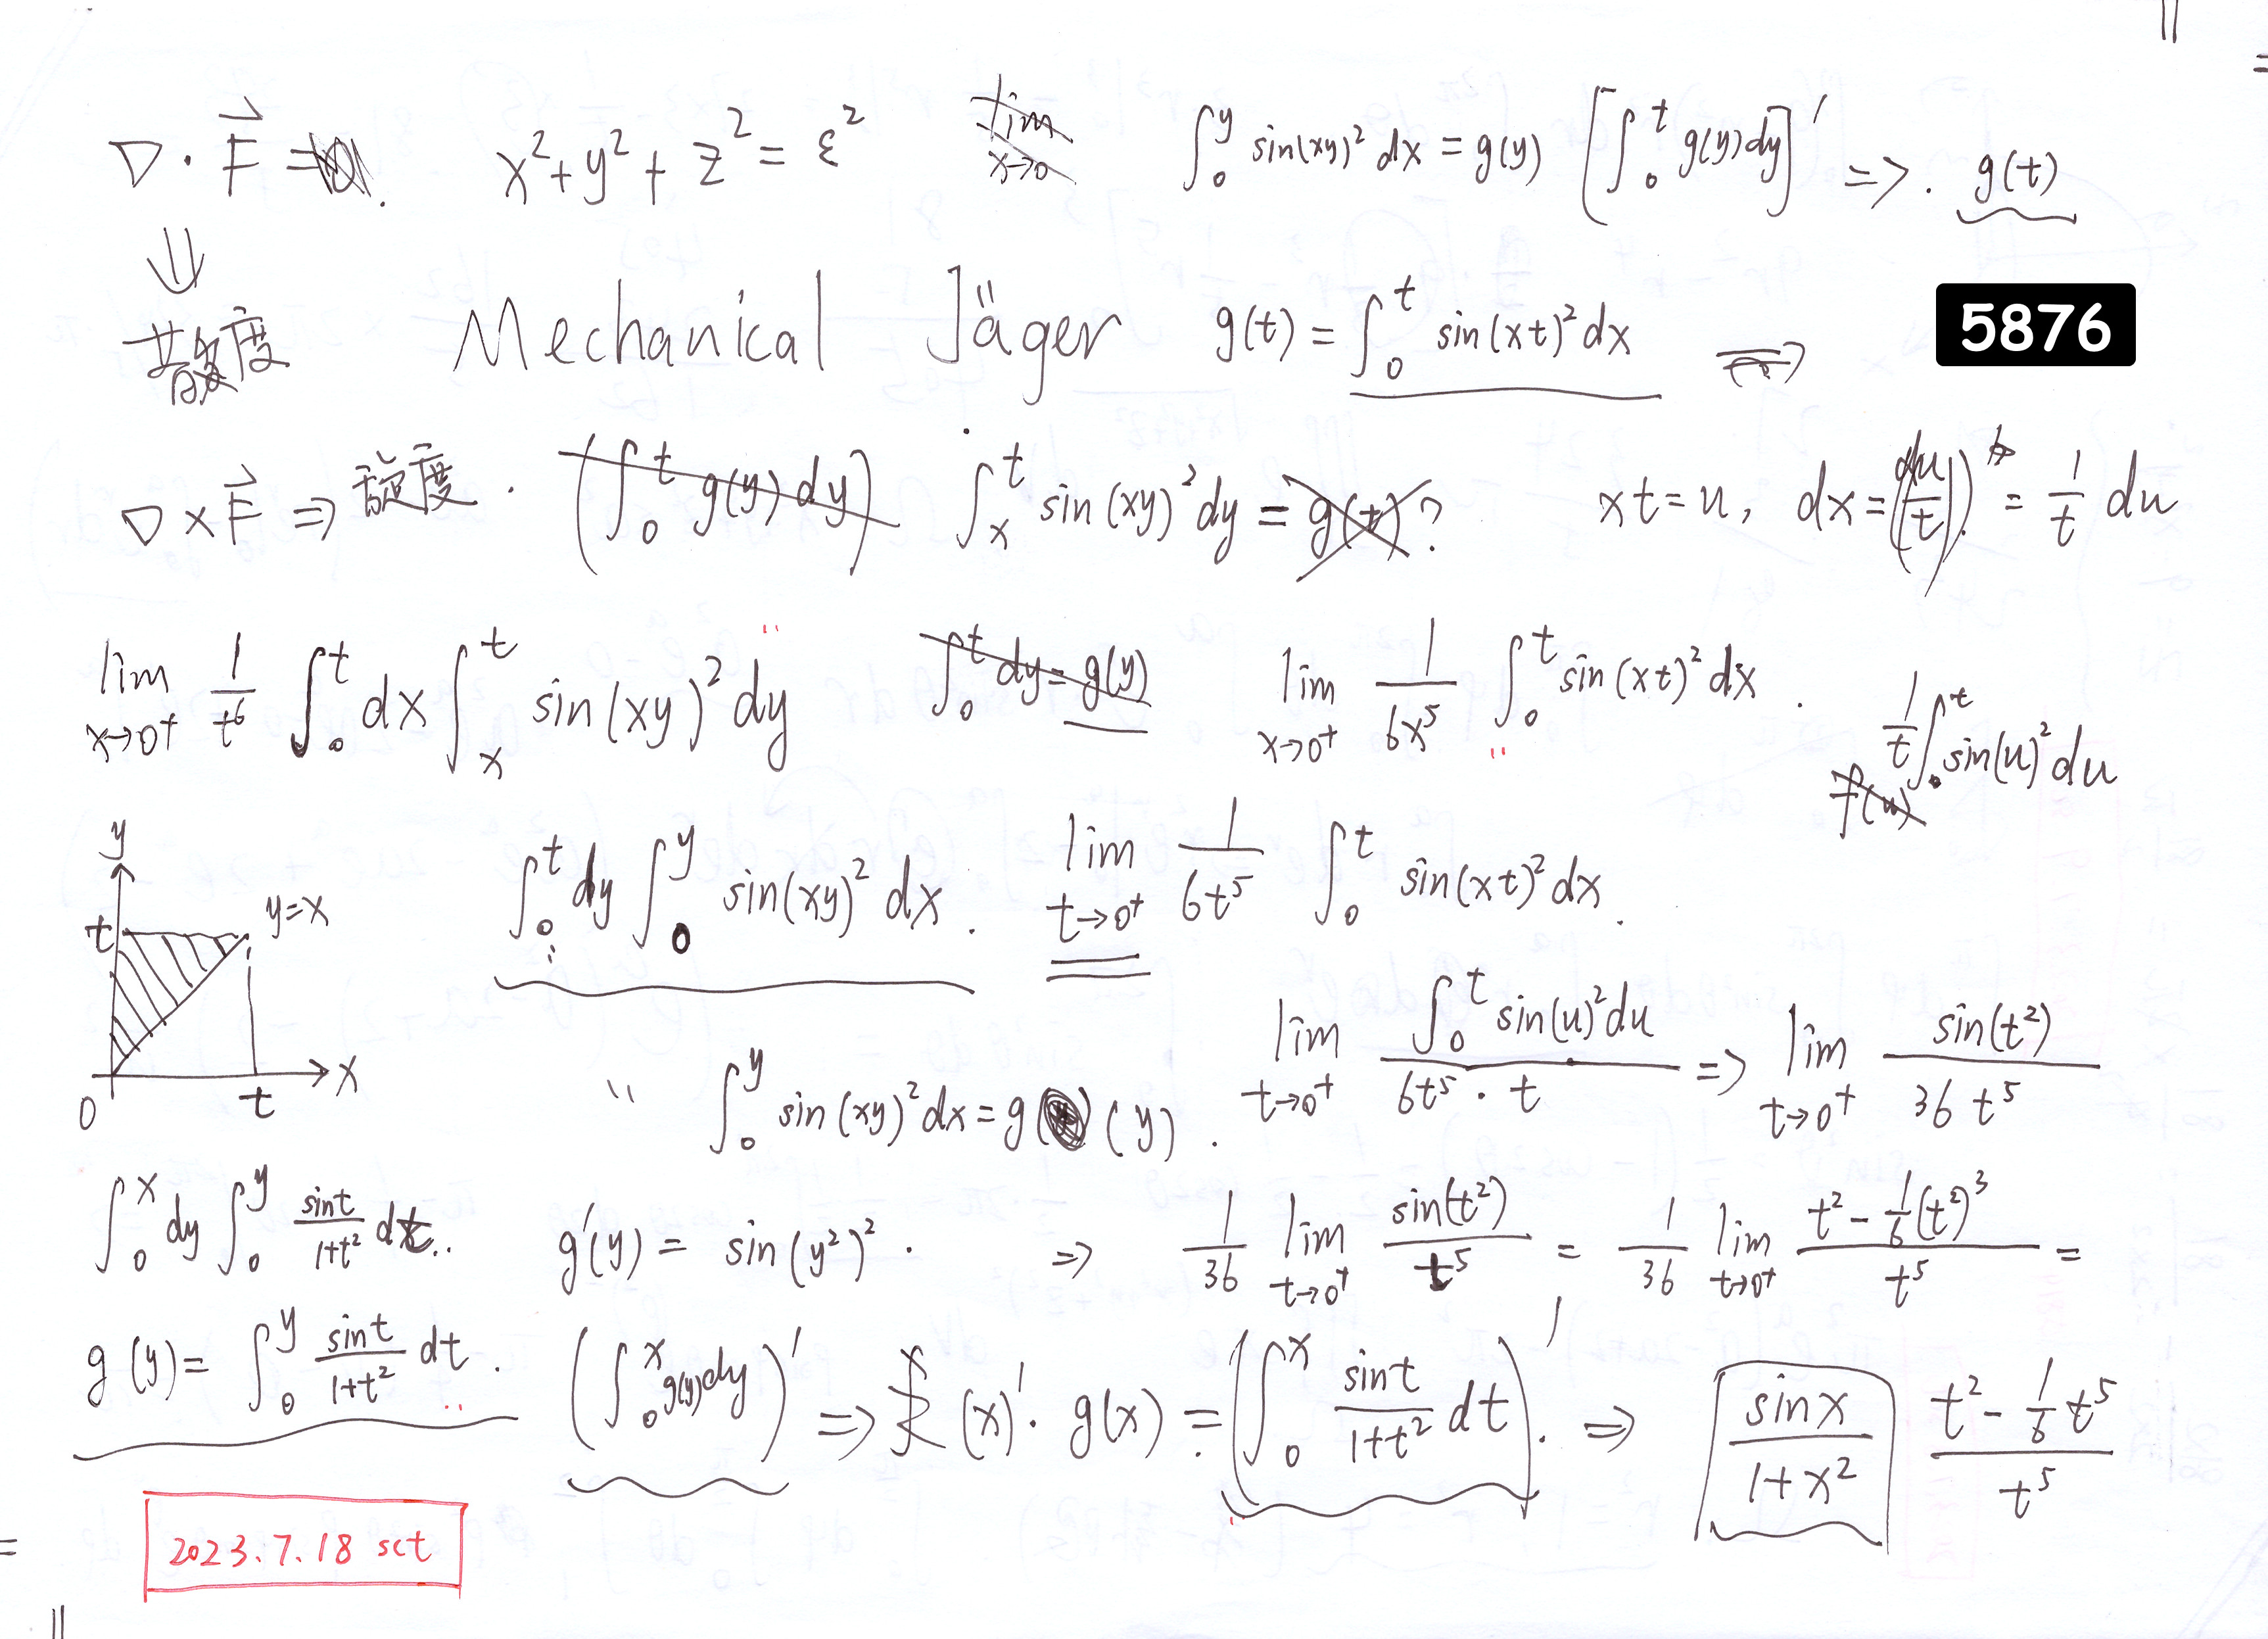 ∇ · F⃗ =
x² + y² + z² = ε²
lim x→0
∫₀^y sin(xy)² dx = g(y) [∫₀^t g(y)dy]′ ⇒. g(t)
⇓
散度
Mechanical Jäger
g(t) = ∫₀^t sin(xt)² dx ⇒
5876
∇ × F⃗ ⇒ 旋度 .
(∫₀^t g(y) dy)
∫ₓ^t sin(xy)² dy = g(t)?
xt = u, dx = (du/t) = 1/t du
lim x→0⁺ 1/t⁶ ∫₀^t dx ∫ₓ^t sin(xy)² dy
∫₀^t dy = g(y)
lim x→0⁺ 1/6x⁵ ∫₀^t sin(xt)² dx .
1/t ∫₀^t sin(u)² du
f(u)
y
t
y=x
0
t
x
∫₀^t dy ∫₀^y sin(xy)² dx .
lim t→0⁺ 1/6t⁵ ∫₀^t sin(xt)² dx .
lim t→0⁺ ∫₀^t sin(u)² du / 6t⁵ · t ⇒ lim t→0⁺ sin(t²) / 36 t⁵
∫₀^y sin(xy)² dx = g (y) .
∫₀^x dy ∫₀^y sint/1+t² dt..
g′(y) = sin(y²)² .
⇒ 1/36 lim t→0⁺ sin(t²)/t⁵ = 1/36 lim t→0⁺ t² − 1/6(t²)³ / t⁵ =
g(y) = ∫₀^y sint/1+t² dt .
(∫₀^x g(y)dy)′ ⇒ (x)′· g(x) = (∫₀^x sint/1+t² dt)′. ⇒ sinx/1+x²
t² − 1/6 t⁵ / t⁵
2023.7.18 sct